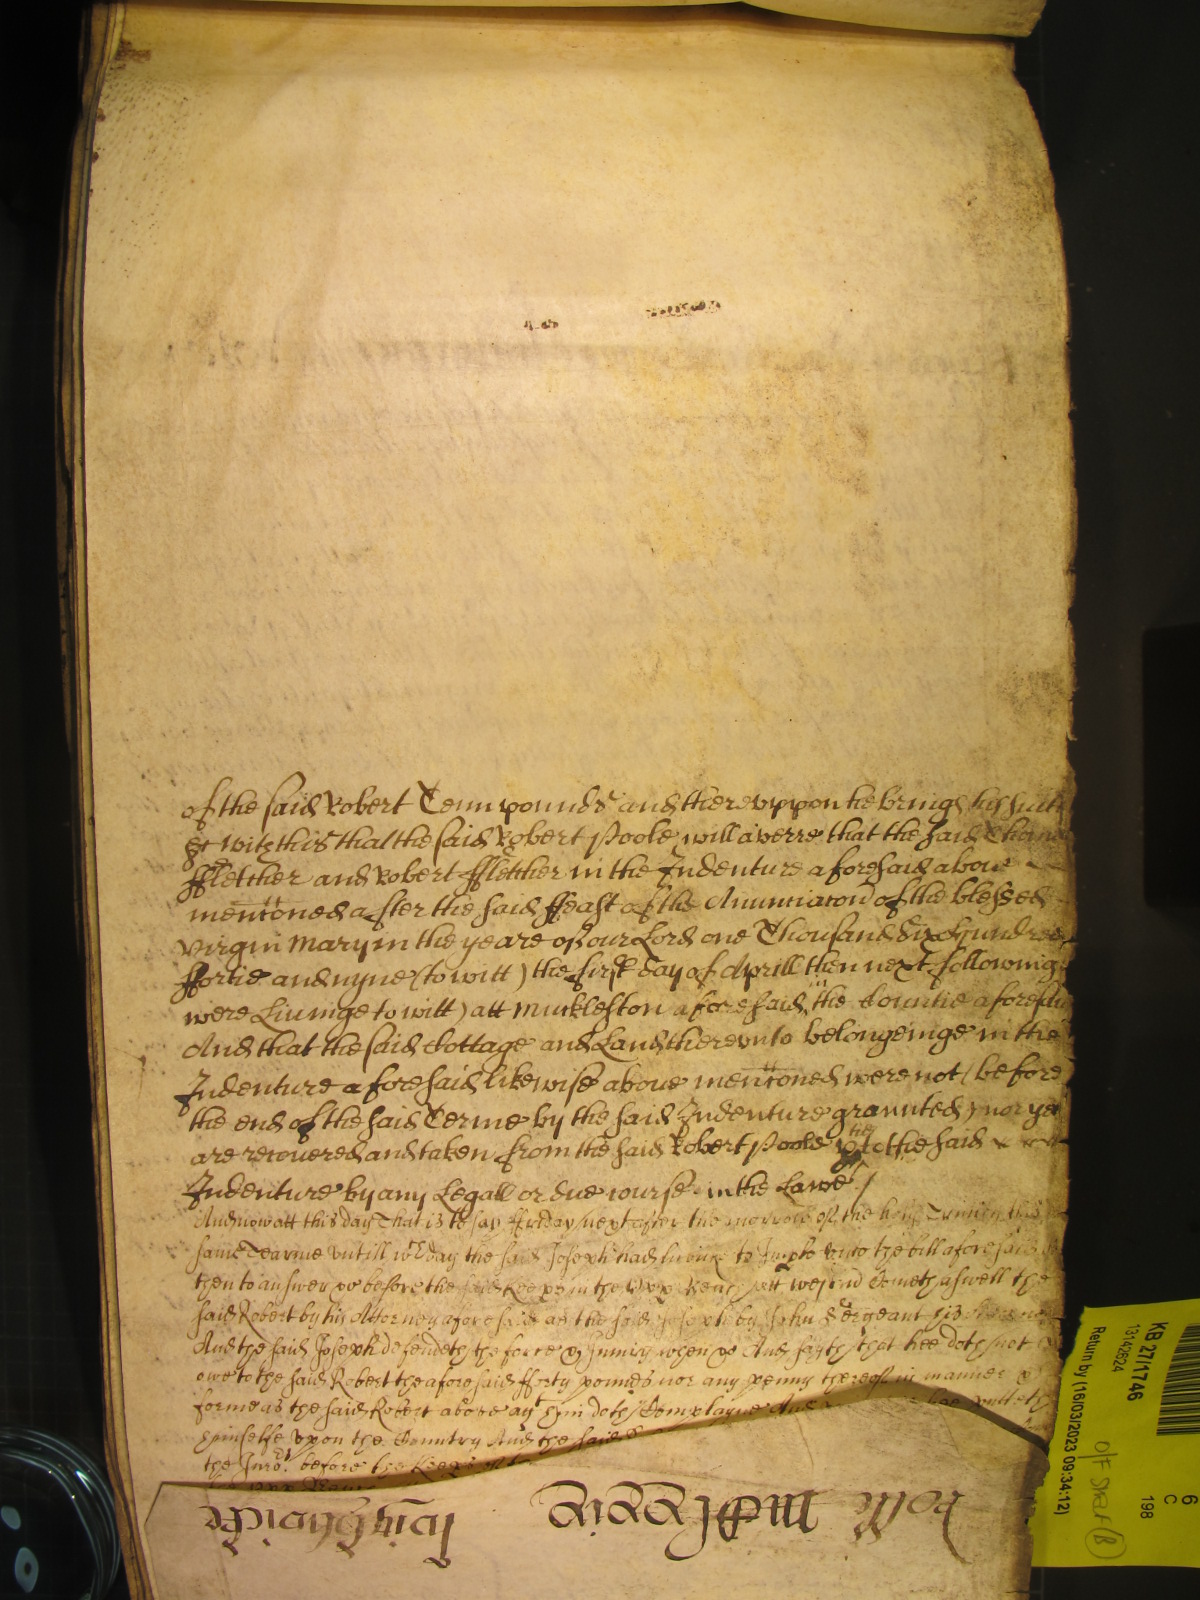 of the said Robert Tenn pounds and therevppon he brings his suite
& witth this that the said Robert Poole will averre that the said Thom
ffletcher and Robert ffletcher in the Indenture aforesaid aboue
mencōned after the said ffeast of the Anunciacōn of the blessed
virgin Mary in the yeare of our Lord one Thousand Six hundred
ffortie and nyne (to witt) the first day of Aprill then next following
were Liuinge to witt) att Muckleston aforesaid in the Countie aforesaid
And that the said Cottage and Land therevnto belongeinge in the
Indenture aforesaid likewise aboue mencōned were not before
the end of the said Terme by the said Indenture graunted) nor yet
are recouered and taken from the said Robert Poole the said
Indenture by any Legall or due course in the Lawe /
And now att this day That is to say ffriday next after the morrow of the holy Trinity this
same Tearme vntill wch day the said Joseph had licence to Imple vnto the bill aforesaid
then to answer &c before the said Keeprs in the Vpp Bench att westm̄ Cometh aswell the
said Robert by his Attorney aforesaid as the said Joseph by John Sergeant his
And the said Joseph defendeth the force & Iniury when &c And sayth that hee doth not
owe to the said Robert the aforesaid fforty pounds nor any penny thereof in manner &
forme as the said Robert aboue agt him doth Complayne And hee putteth
himselfe vpon the Country And the said
the Jury before the Keeprs
the Vpp Bench
Rolle
KB 27/1746
13142624
Return by (16/03/2023 09:34:12)
6
C
198
O/F SHELF (B)